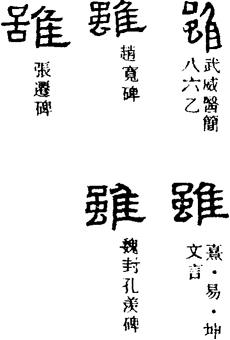 雖
武威醫簡
八六乙
雖
趙寬碑
雖
張遷碑
雖
熹·易·坤
文言
雖
魏封孔羨碑